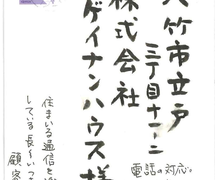 大竹市立戸
三丁目十一ー二
株式会社
ゲイナンハウス様
電話の対応。
住まいる通信を
している長〜いつ
顧客